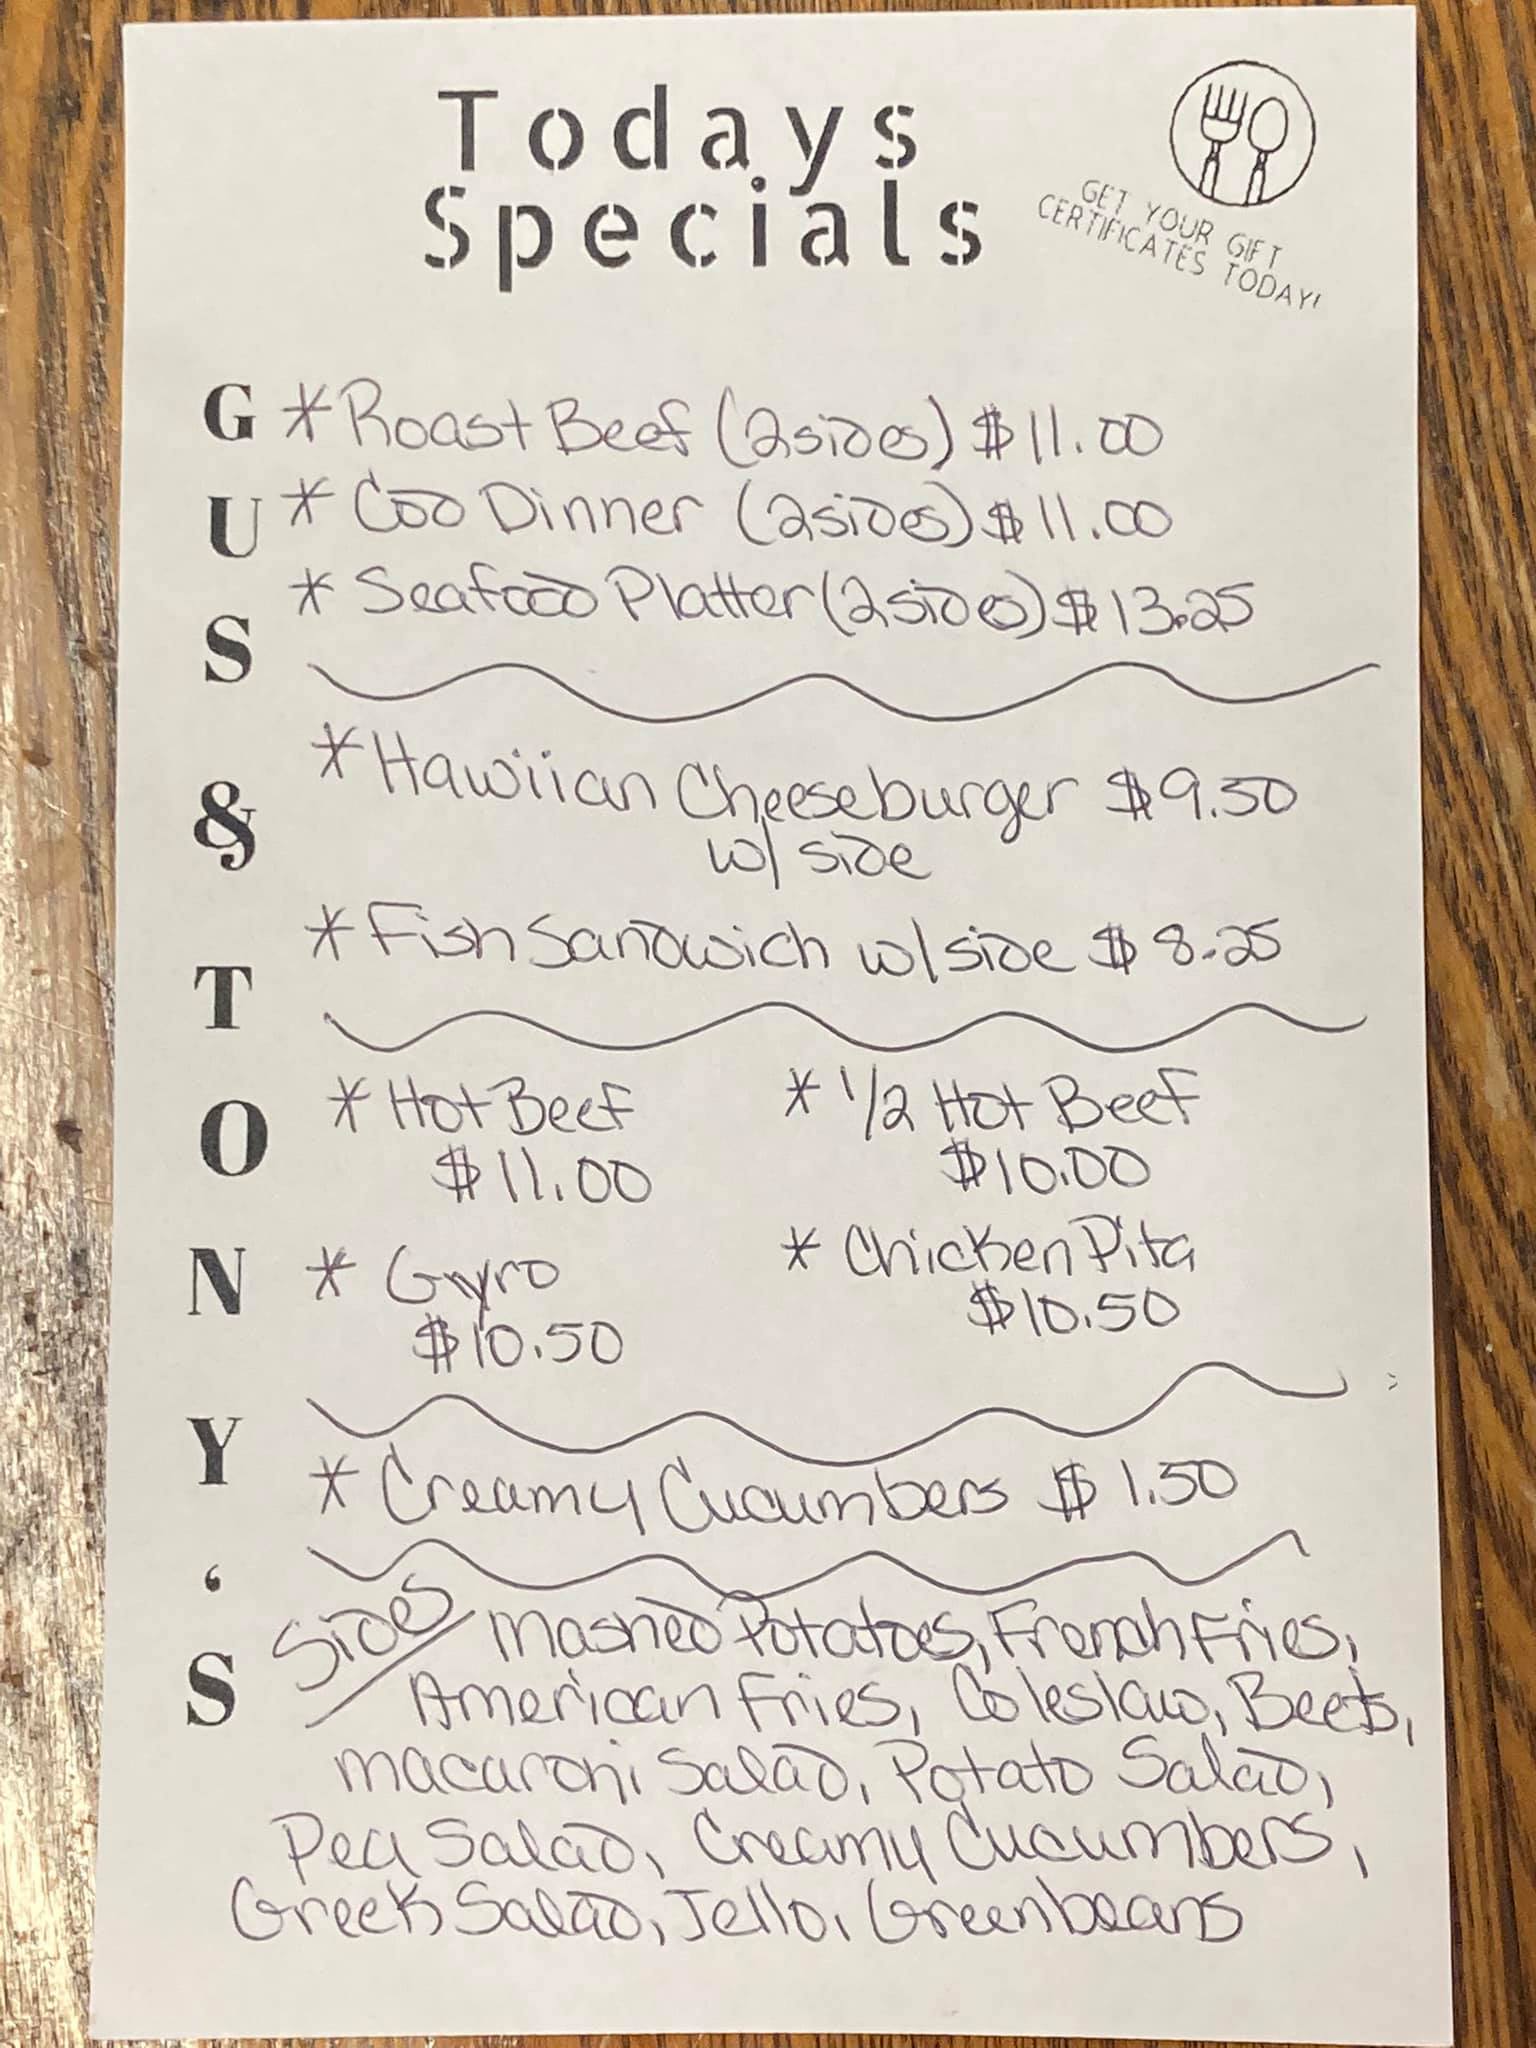 Todays
Specials
GET YOUR GIFT
CERTIFICATES TODAY!
GUS & TONY'S
* Roast Beef (2sides) $11.00
* Cod Dinner (2sides) $11.00
* Seafood Platter (2sides) $13.25
* Hawiian Cheeseburger $9.50
w/ side
* Fish Sandwich w/side $8.25
* Hot Beef * 1/2 Hot Beef
$11.00 $10.00
* Gyro * Chicken Pita
$10.50 $10.50
* Creamy Cucumbers $1.50
Sides Mashed Potatoes, French Fries,
American Fries, Coleslaw, Beets,
Macaroni Salad, Potato Salad,
Pea Salad, Creamy Cucumbers,
Greek Salad, Jello, Greenbeans